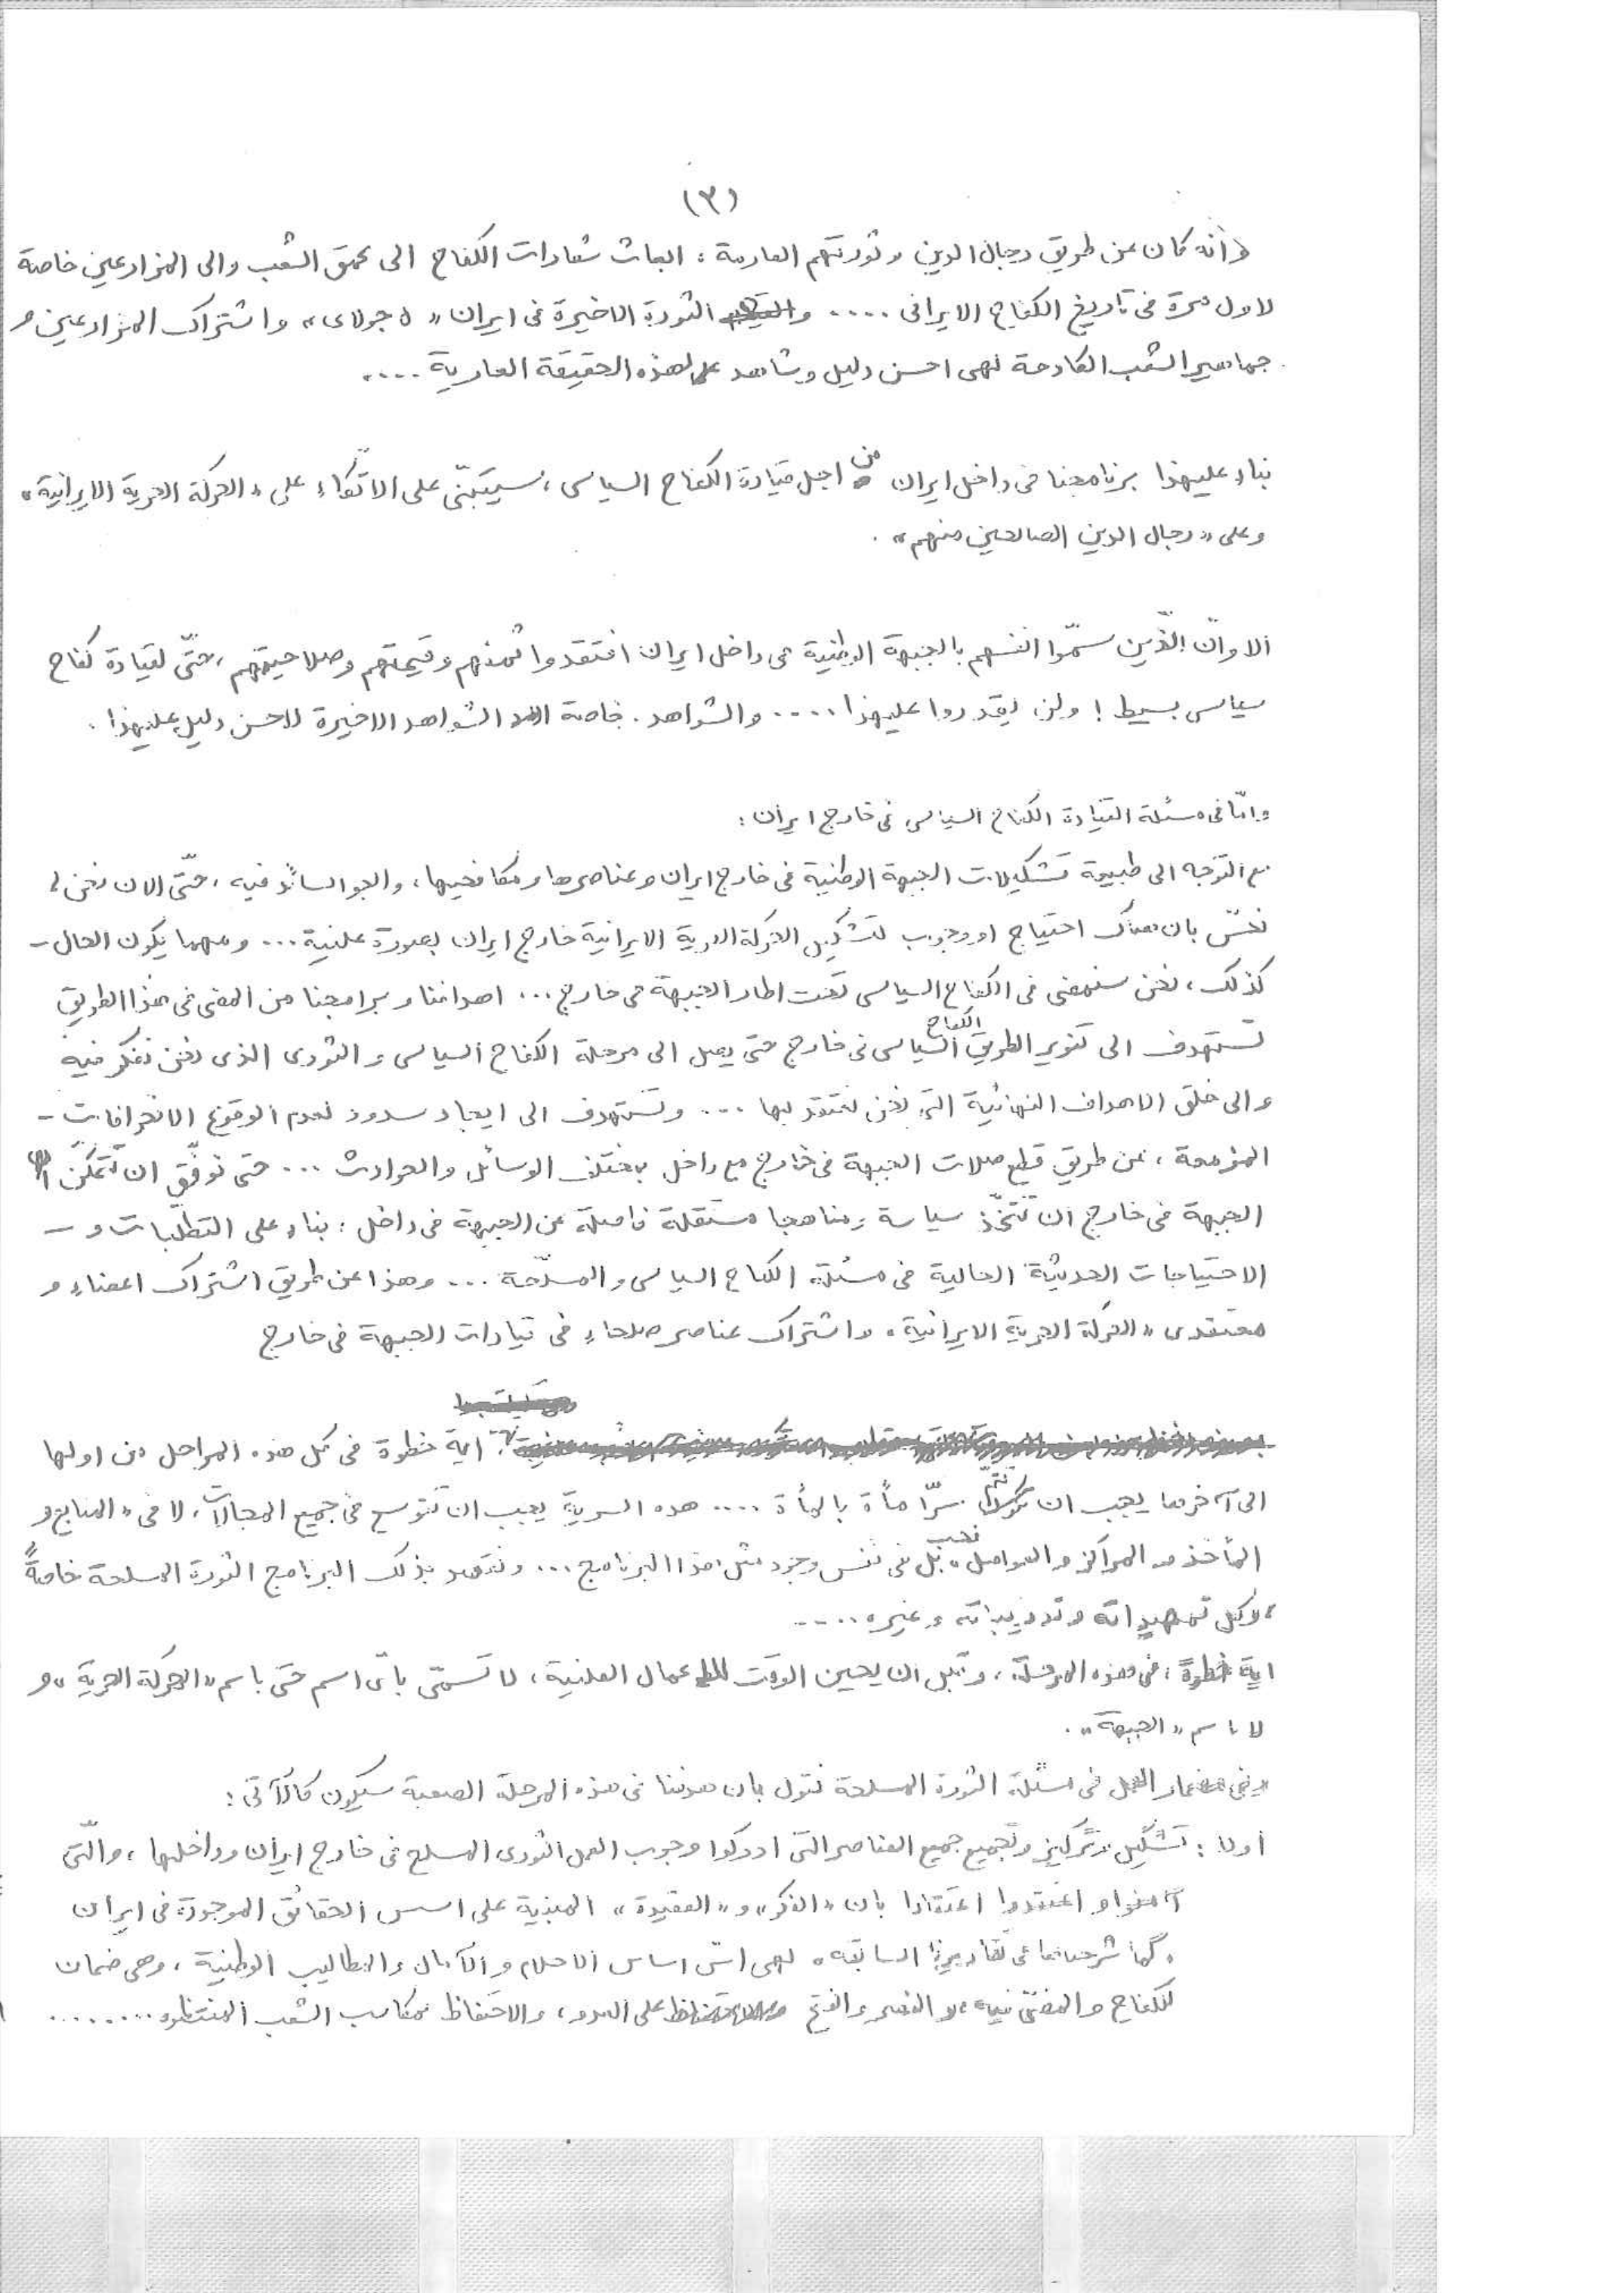 (٣)
وانه كان عن طريق رجال الدين وثورتهم العارمة : انبعاث شعارات الكفاح الى عمق الشعب والى المزارعين خاصة
لاول مرة فى تاريخ الكفاح الايرانى .... و الثورة الاخيرة فى ايران « ٥ جولاى » واشتراك المزارعين و
جماهير الشعب الكادحة لهى احسن دليل وشاهد لهذه الحقيقة العارية ....
بناء عليهذا برنامجنا فى داخل ايران من اجل قيادة الكفاح السياسى ، سيتبنّى على الاتّكاء على « الحركة الحرية الايرانية »
وعلى « رجال الدين الصالحين منهم » .
الا وانّ الّذين سمّوا انفسهم بالجبهة الوطنية فى داخل ايران افتقدوا ثمنهم وقيمتهم وصلاحيتهم ، حتّى لقيادة كفاح
سياسى بسيط ! ولن يقدروا عليهذا .... والشواهد . خاصة الشواهد الاخيرة لاحسن دليل عليهذا .
وامّا فى مسئلة القيادة الكفاح السياسى فى خارج ايران :
مع التوجه الى طبيعة تشكيلات الجبهة الوطنية فى خارج ايران وعناصرها ومكافحيها ، والجو السائد فيه ، حتّى الان نحن لا
نحسّ بان هناك احتياج او وجوب لتشكيل الحركة الحرية الايرانية خارج ايران بصورة علنية ... ومهما يكون الحال -
كذلك ، نحن سنمضى فى الكفاح السياسى تحت اطار الجبهة فى خارج ... اهدافنا وبرامجنا من المضى فى هذا الطريق
تستهدف الى تنوير الطريق الكفاح السياسى فى خارج حتى يصل الى مرحلة الكفاح السياسى والثورى الذى نحن نفكر فيه
والى خلق الاهداف النهائية التى نحن نعتقد بها ... وتستهدف الى ايجاد سدود لعدم الوقوع الانحرافات -
المزمعة ، عن طريق قطع صلات الجبهة فى خارج مع داخل بمختلف الوسائل والحوادث ... حتى نوفّق ان تتمكّن
الجبهة فى خارج ان تتخّذ سياسة ومناهجا مستقلة فاصلة عن الجبهة فى داخل : بناء على التطلّبات و -
الاحتياجات الحديثة الحالية فى مسئلة الكفاح السياسى والمسلّحة ... وهذا عن طريق اشتراك اعضاء و
معتقدى « الحركة الحرية الايرانية » واشتراك عناصر صلحاء فى قيادات الجبهة فى خارج
اية خطوة فى كل هذه المراحل من اولها
الى آخرها يجب ان تتمّ سرّا مأة بالمأة .... هذه السرية يجب ان تتوسع فى جميع المجالات ، لا فى « المنابع و
المأخذ و المراكز و العوامل » فحسب بل فى نفس وجود مثل هذا البرنامج ... ونقصد بذلك البرنامج الثورة المسلحة خاصةً
، وكل تمهيداته وتدريباته وغيره ....
اية خطوةً ، فى هذه المرحلة ، وقبل ان يحين الوقت للاعمال العلنية ، لا تسمّى باىّ اسم حتى باسم « الحركة الحرية » و
لا باسم « الجبهة » .
وفى مضمار العمل فى مسئلة الثورة المسلحة نقول بان هدفنا فى هذه المرحلة الصعبة سيكون كالآتى :
أولا : تشكيل وتركيز وتجميع جميع العناصر التى ادركوا وجوب العمل الثورى المسلح فى خارج ايران وداخلها ، والّتى
آمنوا و اعتقدوا اعتقادا بان « الفكر » و « العقيدة » المبنية على اسس الحقائق الموجودة فى ايران
« كما شرحناها فى تقاريرنا السابقه » لهى اسّ اساس الاحلام والآمال والمطاليب الوطنية ، وهى ضمان
للكفاح والمضىّ فيه ، والنصر والفتح على العدو ، والاحتفاظ بمكاسب الشعب المنتظره .........